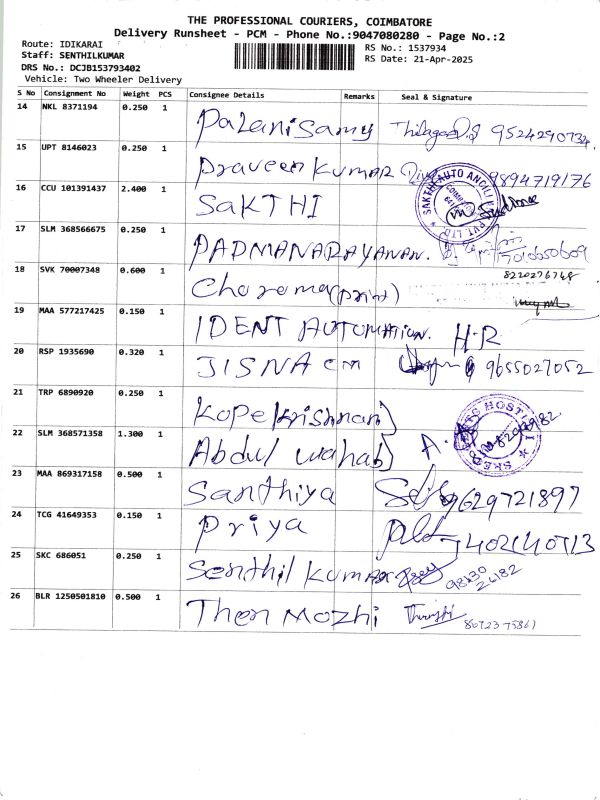 THE PROFESSIONAL COURIERS, COIMBATORE
Delivery Runsheet - PCM - Phone No.:9047080280 - Page No.:2
Route: IDIKARAI
Staff: SENTHILKUMAR
DRS No.: DCJB153793402
Vehicle: Two Wheeler Delivery
RS No.: 1537934
RS Date: 21-Apr-2025
S No Consignment No Weight PCS Consignee Details Remarks Seal & Signature
14 NKL 8371194 0.250 1 Palanisamy 9524290734
15 UPT 8146023 0.250 1 Praveen Kumar 9894719176
16 CCU 101391437 2.400 1 SAKTHI
SAKTHI AUTO ANCILL PVT. LTD.
17 SLM 368566675 0.250 1 PADMANARAYANAN.
18 SVK 70007348 0.600 1 (print) 8220276748
19 MAA 577217425 0.150 1 IDENT AUTOMATION. H.R
20 RSP 1935690 0.320 1 JISNA CM 9655027052
21 TRP 6890920 0.250 1 Kope(Krishnan)
22 SLM 368571358 1.300 1 Abdul wahab A.
23 MAA 869317158 0.500 1 Santhiya 9629721897
24 TCG 41649353 0.150 1 Priya
25 SKC 686051 0.250 1 Senthil Kumar
26 BLR 1250501810 0.500 1 Then Mozhi